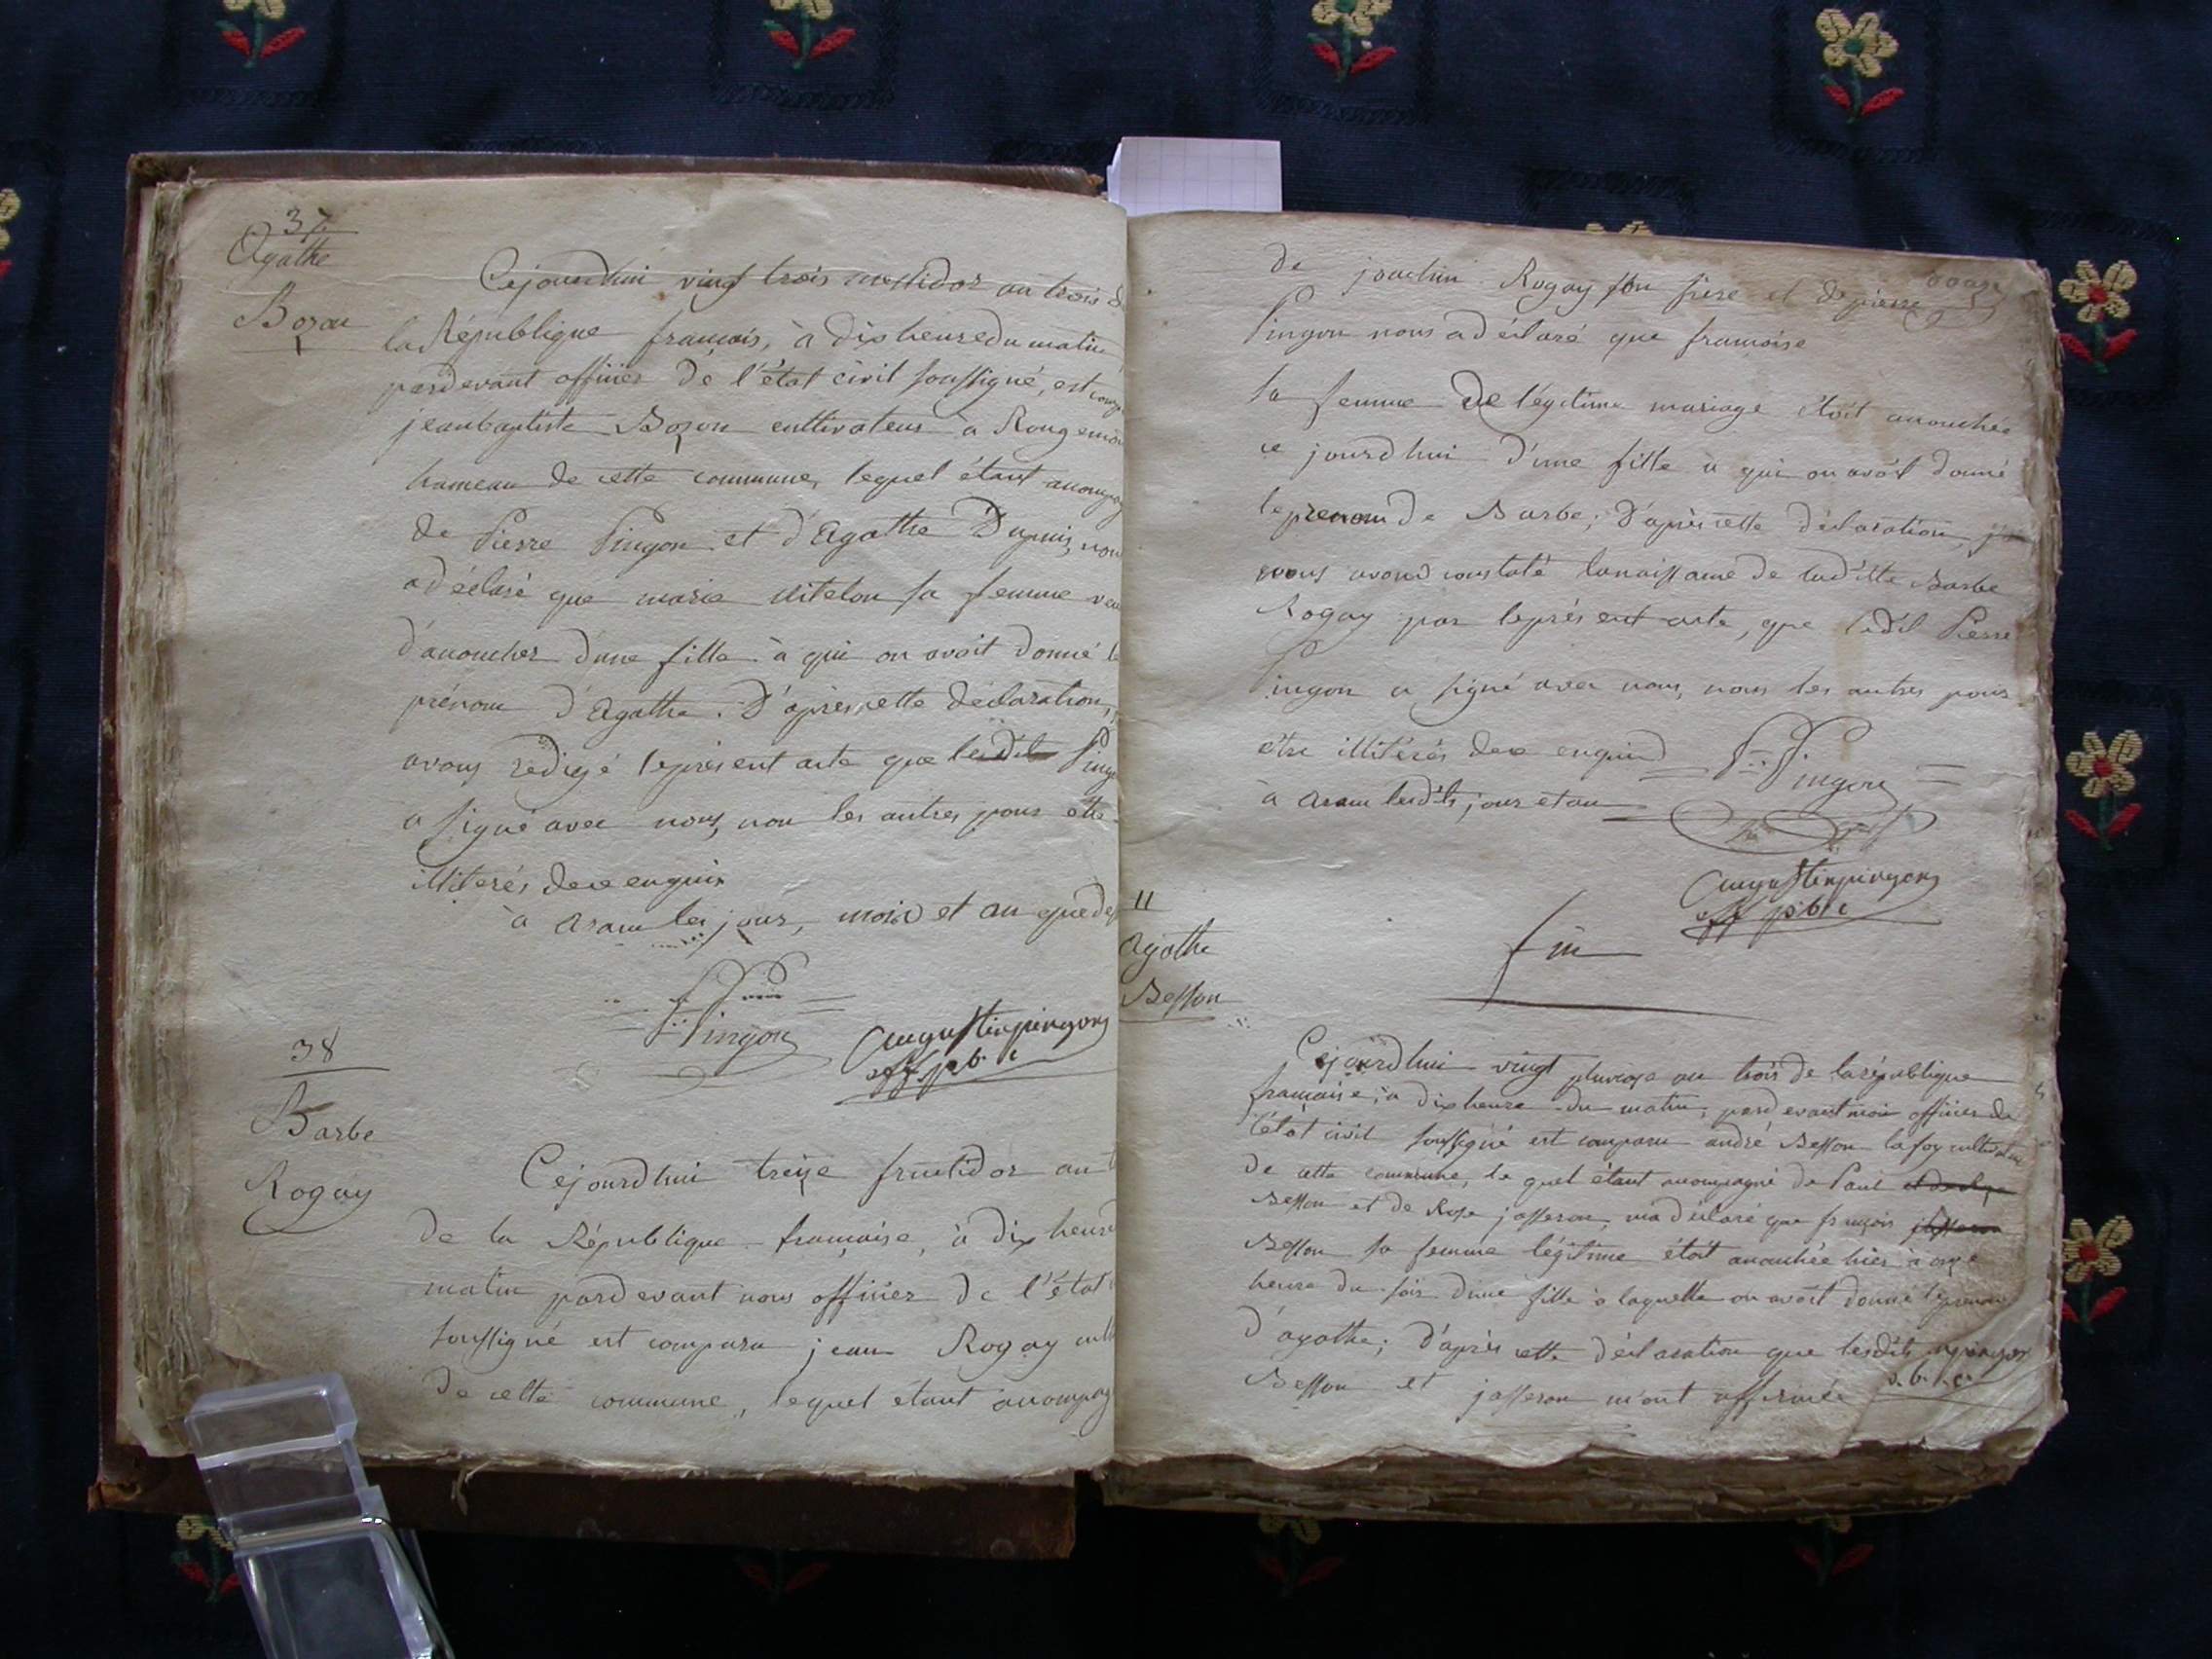 37
Agathe
Bozon
Cejourdhui vingt trois messidor an trois d
la République francais, à dix heure du matin
pardevant officier de l'état civil soussigné, est comp
jeanbaptiste Bozon cultivateur à Rougemon
hameau de cette commune, lequel étant accompag
de Pierre Pingon et d'Agathe Dupuis, nou
a déclaré que marie vitelon sa femme ven
d'accoucher d'une fille à qui on avoit donné le
prénom d'Agathe. D'après cette déclaration,
avons redigé le présent acte que Pingo
a signé avec nous, non les autres pour être
illiterés de ce enquis
à aram les jour, mois et an que de
Pingon
augustinpingon
off. pb. c
38
Barbe
Rogay
Cejourdhui treize fructidor an t
de la République française, à dix heure
matin pardevant nous officier de l'état
soussigné est comparu jean Rogay cult
de cette commune, lequel étant accompag
de joachim Rogay son frère et de pierre
Pingon nous a déclaré que francoise
sa femme de légitime mariage étoit accouchée
ce jourdhui d'une fille à qui on avoit donné
le prenom de Barbe; d'après cette déclaration,
nous avons constaté la naissance de laditte Barbe
Rogay par le présent acte, que ledit Pierre
Pingon a signé avec nous, nous les autres pour
être illitérés de ce enquis
à aram lesdits jour et an
Pingon
augustinpingon
off pb c
fin
11
Agathe
Besson
Cejourdhui vingt pluviose an trois de la république
française, à dix heure du matin, pardevant moi officier de
l'état civil soussigné est comparu andré Besson la foy cultivateur
de cette commune, le quel étant accompagné de Paul
Besson et de Rose josseron, m'a déclaré que françois josseron
Besson sa femme légitime étoit accouchée hier à onze
heure du soir d'une fille à laquelle on avoit donné le prenom
d'agathe; d'après cette déclaration que lesdits
Besson et josseron m'ont affirmée